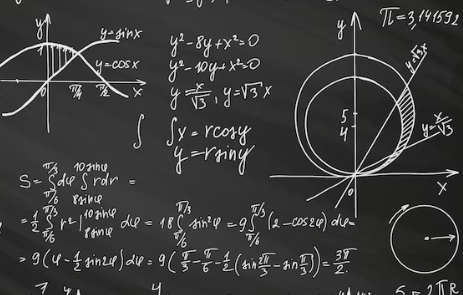 y
y=sinx
y=cosx
π/4
π/2
x
0
y²-8y+x²=0
y²-10y+x²=0
y=x/√3, y=√3x
∫ ∫x=rcosy
y=rsiny
π=3,141592
y
y=√3x
5
4
y=x/√3
0
x
S=∫π/6 π/3 dφ ∫8sinφ 10sinφ rdr =
=1/2 ∫π/6 π/3 r²|8sinφ 10sinφ dφ = 18∫π/6 π/3 sin²φ = 9∫π/6 π/3 (2-cos2φ)dφ=
=9(φ-1/2 sin2φ)dφ=9(π/3-π/6-1/2(sin2π/3-sinπ/3))=3π/2